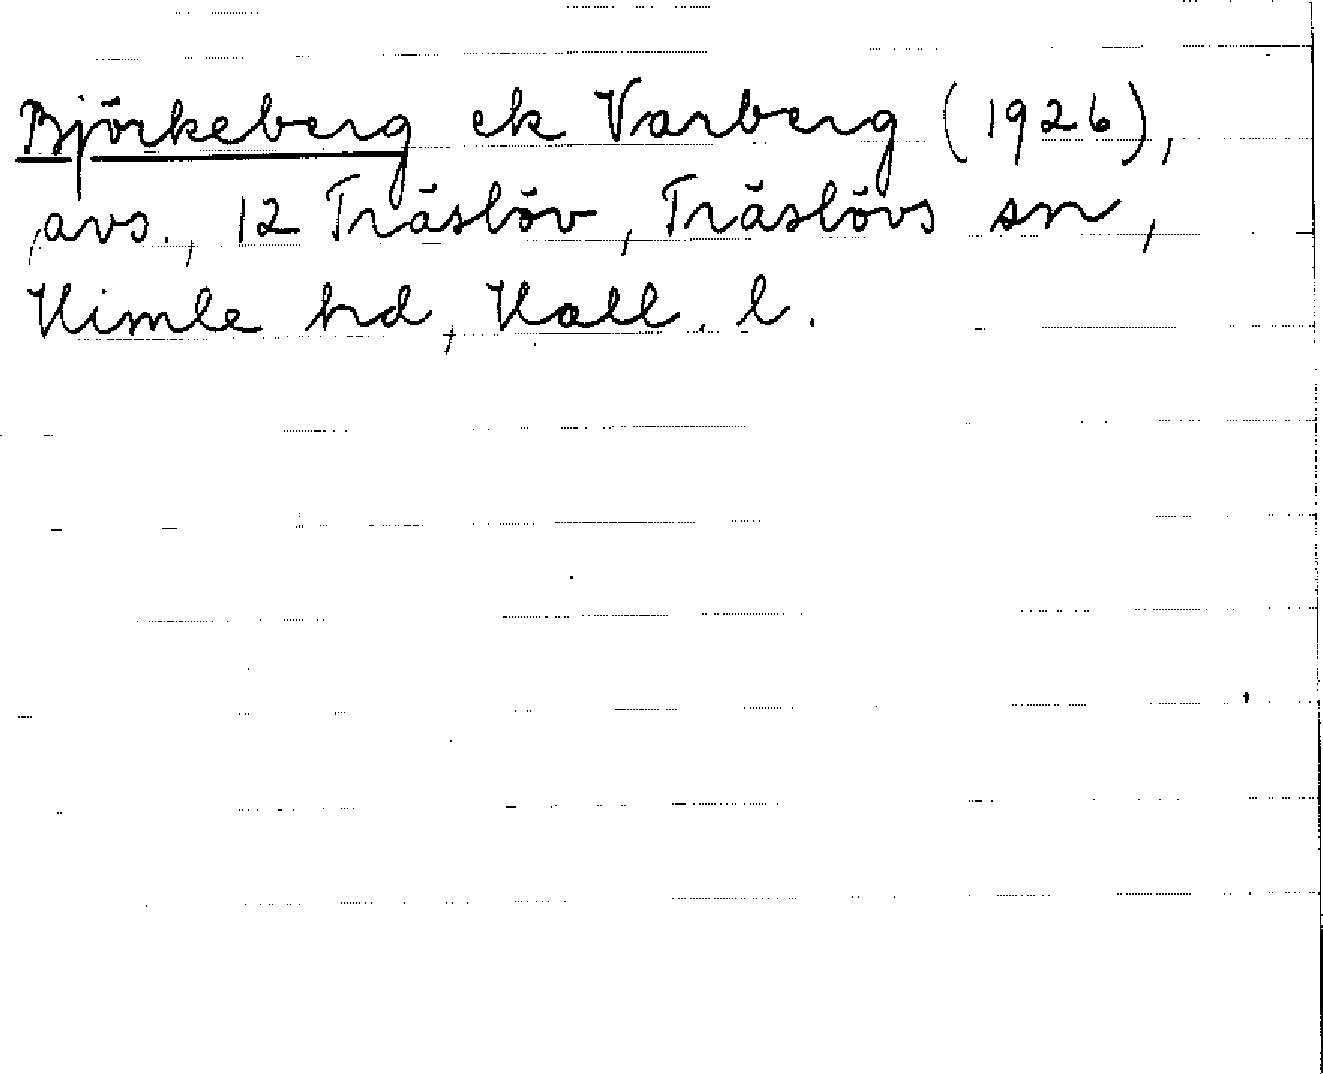 Björkeberg ek Varberg (1926),
avs., 12 Träslöv, Träslövs sn,
Himle hd, Hall. l.